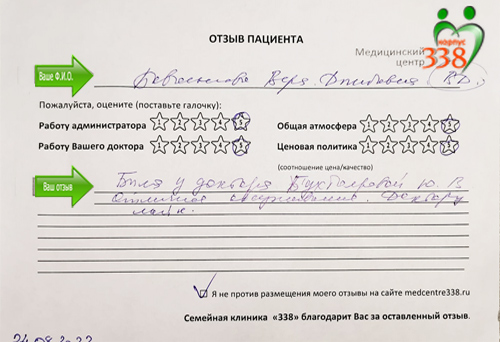 ОТЗЫВ ПАЦИЕНТА
корпус
Медицинский
центр 338
Ваше Ф.И.О. Вера
Пожалуйста, оцените (поставьте галочку):
Работу администратора 1 2 3 4 5 Общая атмосфера 1 2 3 4 5
Работу Вашего доктора 1 2 3 4 5 Ценовая политика 1 2 3 4 5
(соотношение цена/качество)
Ваш отзыв Была у доктора Ю В
Отличное обслуживание. Доктору
лайк.
Я не против размещения моего отзывы на сайте medcentre338.ru
Семейная клиника «338» благодарит Вас за оставленный отзыв.